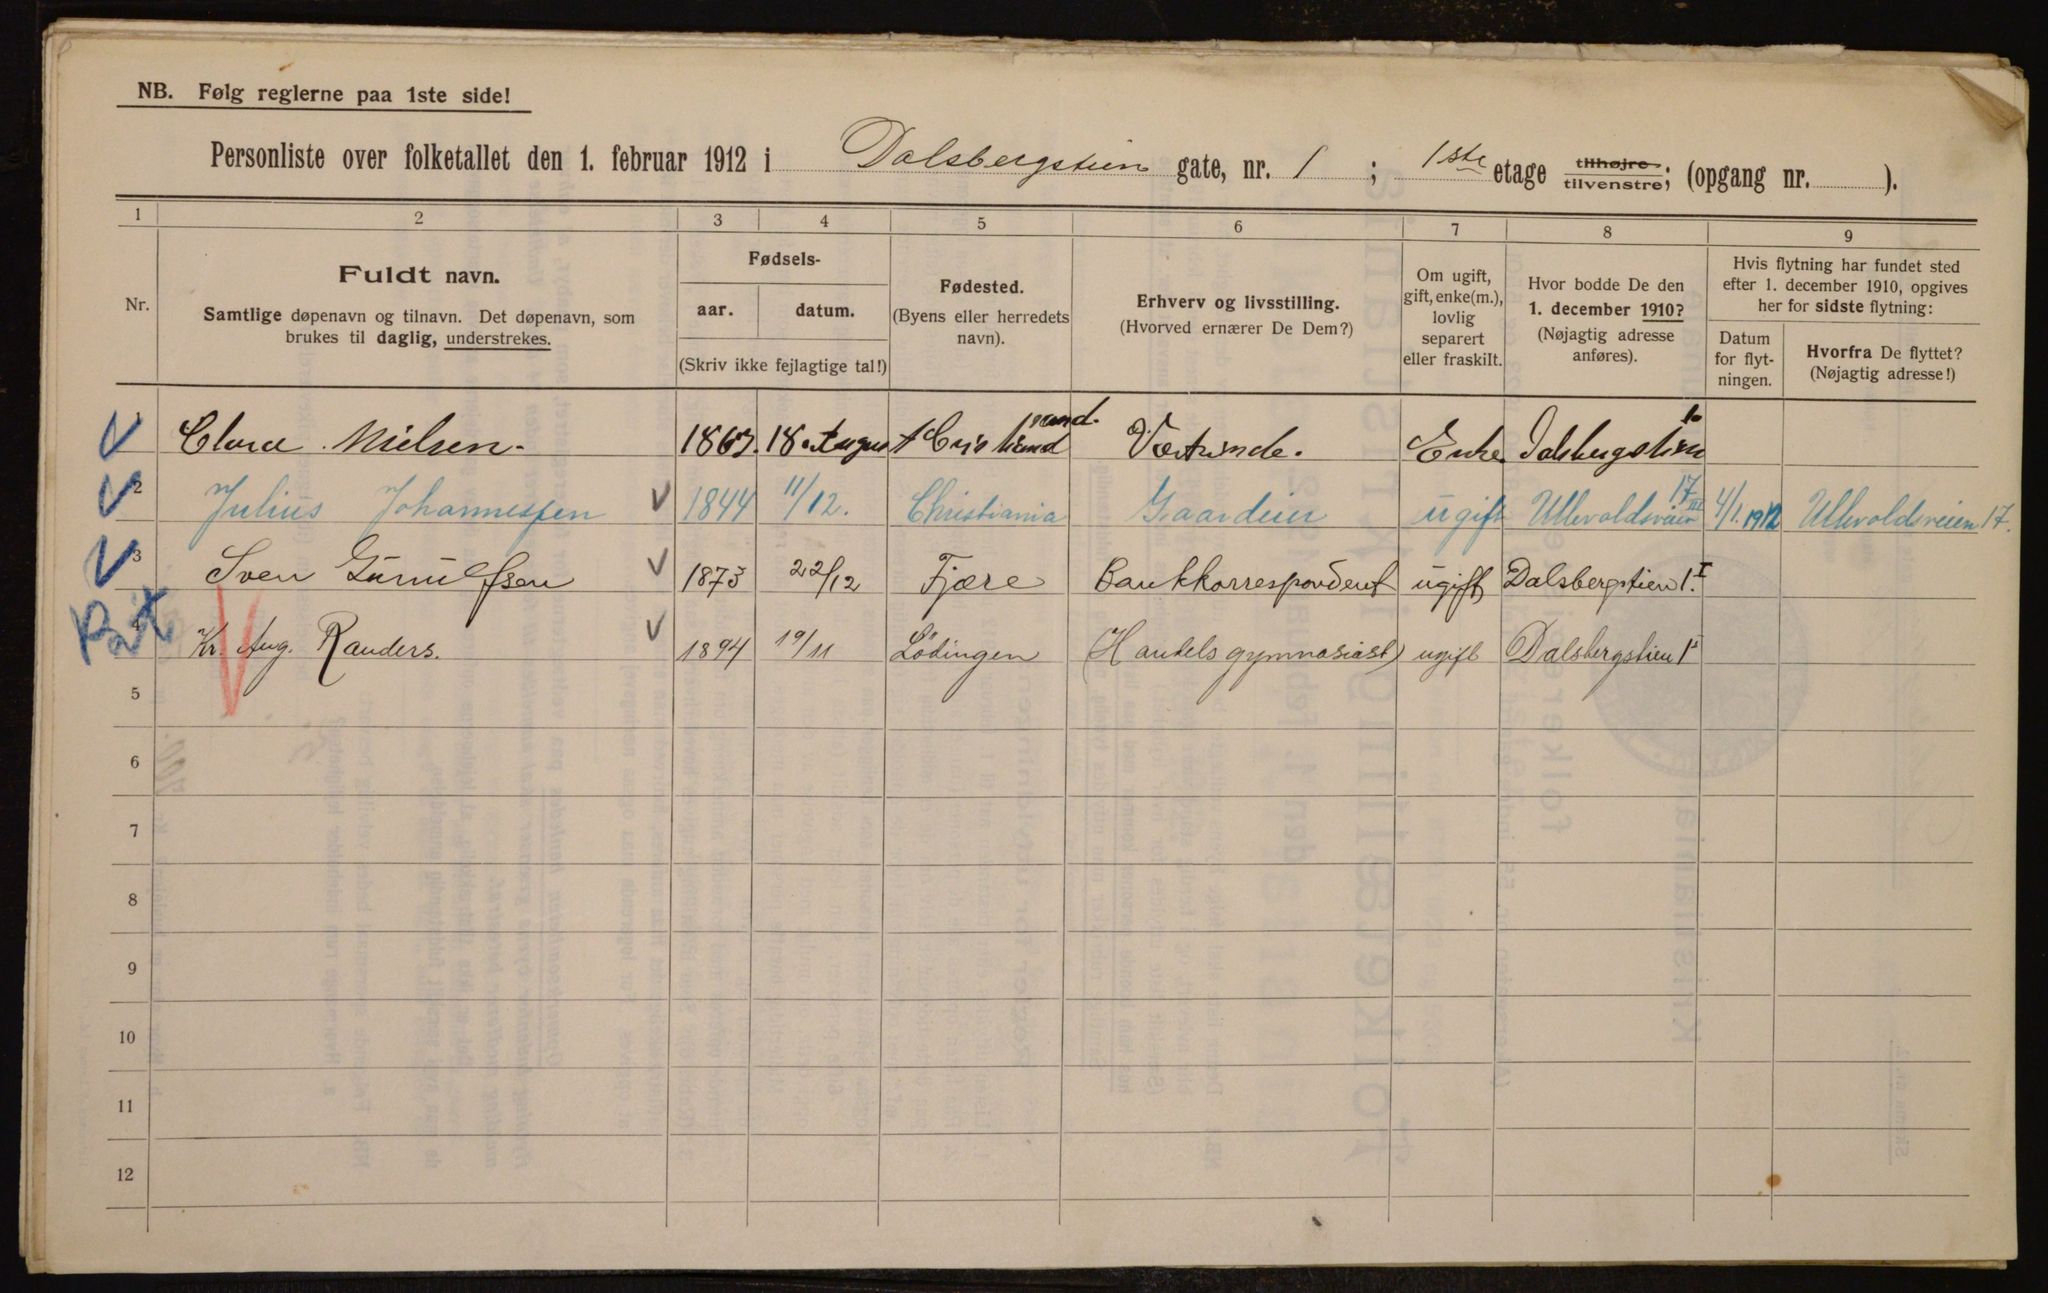 NB. Følg reglerne paa 1ste side!
Personliste over folketallet den 1. februar 1912 i Dalsbergstien gate, nr. 1 ; 1ste etage tilhøjre tilvenstre; (opgang nr. ).
1 2 3 4 5 6 7 8 9
Nr.
Fuldt navn.
Samtlige døpenavn og tilnavn. Det døpenavn, som
brukes til daglig, understrekes.
Fødsels-
aar. datum.
(Skriv ikke fejlagtige tal!)
Fødested.
(Byens eller herredets
navn).
Erhverv og livsstilling.
(Hvorved ernærer De Dem?)
Om ugift,
gift, enke(m.),
lovlig
separert
eller fraskilt.
Hvor bodde De den
1. december 1910?
(Nøjagtig adresse
anføres).
Hvis flytning har fundet sted
efter 1. december 1910, opgives
her for sidste flytning:
Datum
for flyt-
ningen.
Hvorfra De flyttet?
(Nøjagtig adresse!)
1 Clara Nielsen. 18 August Enke
2 Julius Johannessen 1844 11/12. Christiania Gaardeier ugift Ullevoldsveien 17 III 4/1. 1912 Ullevoldsveien 17.
3 Sven Gunulfsen 1873 22/12 Fjære Bankkorrespondent ugift Dalsbergstien 1. I
4 Kr. Aug. Randers. 1894 19/11 Lödingen (Handelsgymnasiast) ugift Dalsbergstien 1 I
5
6
7
8
9
10
11
12